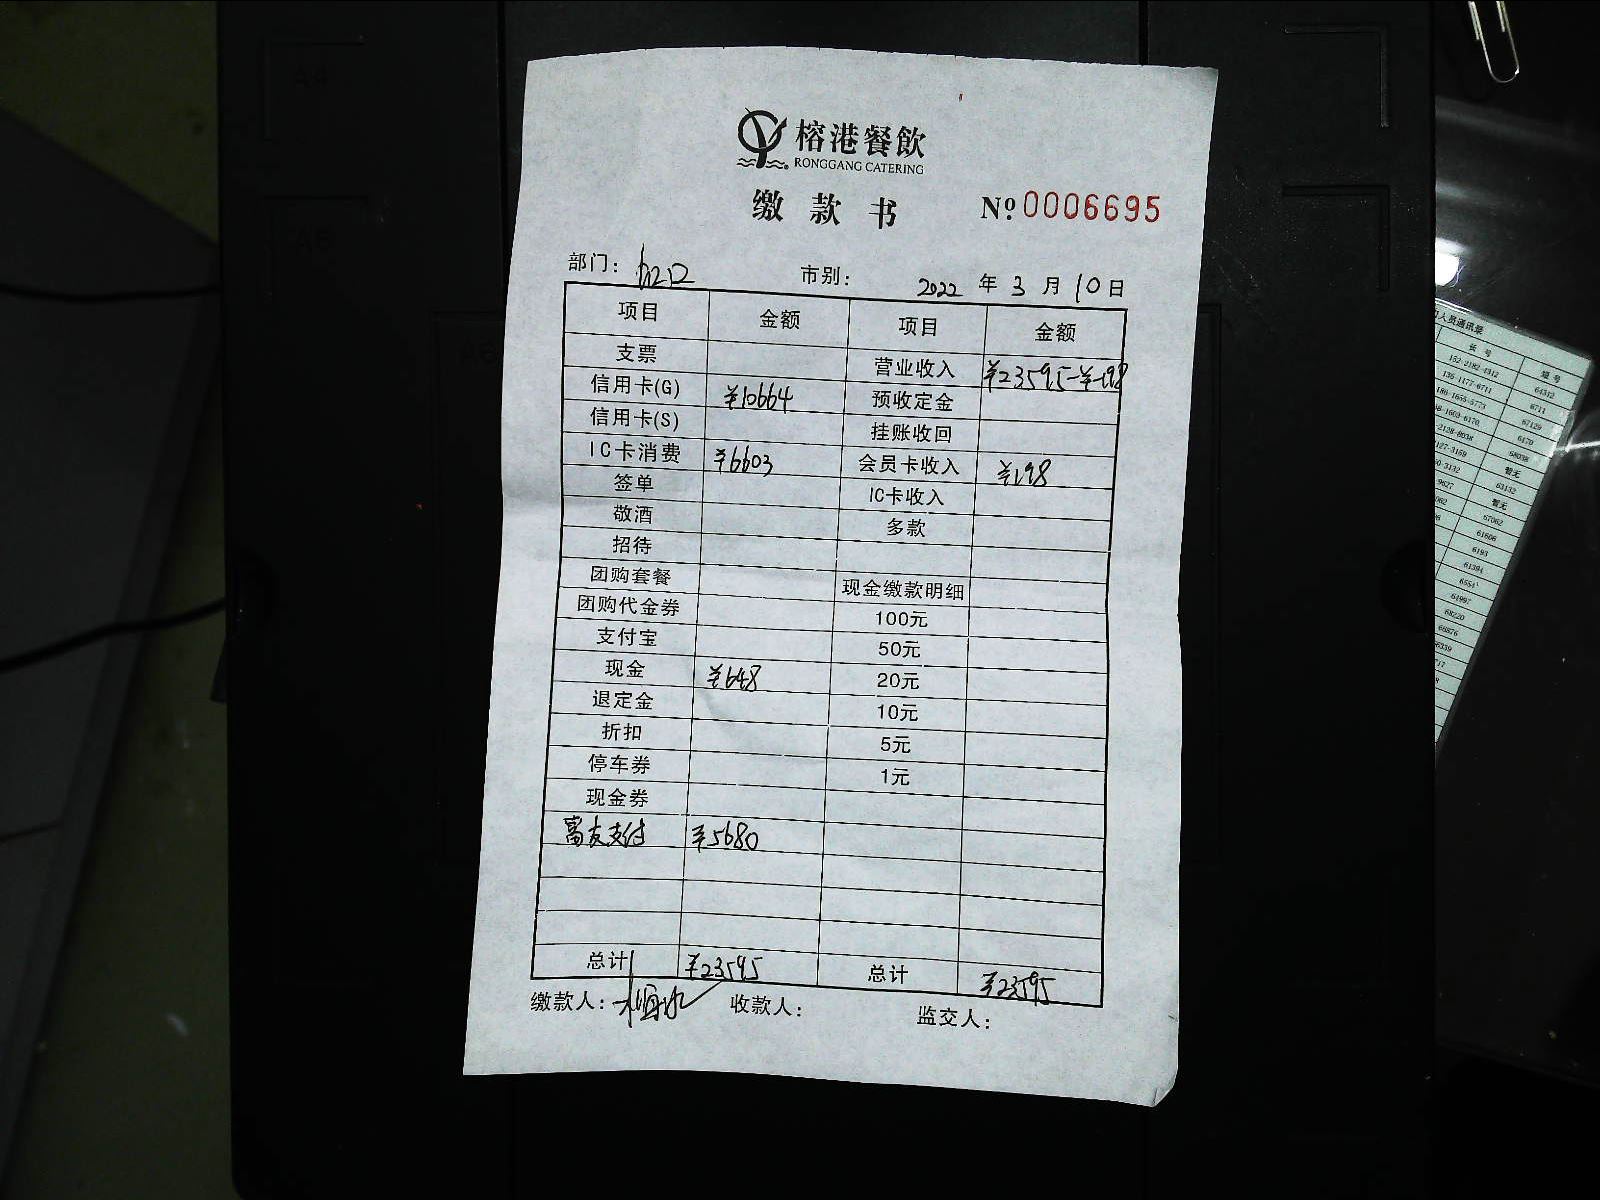 榕港餐飲
RONGGANG CATERING
缴款书 №0006695
部门: 市别: 2022 年 3 月 10 日
项目 金额 项目 金额
支票 营业收入 ¥23595-¥198
信用卡(G) ¥10664 预收定金
信用卡(S) 挂账收回
IC卡消费 ¥6603 会员卡收入 ¥198
签单 IC卡收入
敬酒 多款
招待
团购套餐 现金缴款明细
团购代金券 100元
支付宝 50元
现金 ¥648 20元
退定金 10元
折扣 5元
停车券 1元
现金券
富友支付 ¥5680
总计 ¥23595 总计 ¥23595
缴款人: 收款人: 监交人:
人员通讯录
长号 短号
64312
6711
67129
6170
68038
暂无
63132
暂无
67062
61606
6193
61394
6554
64997
68220
66876